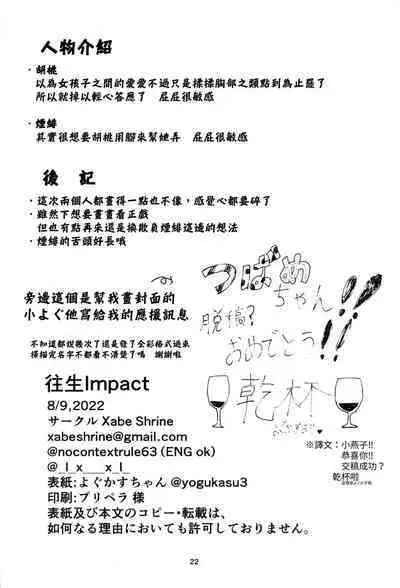 人物介紹
・胡桃
以為女孩子之間的愛愛不過只是揉揉胸部之類點到為止罷了
所以就掉以輕心答應了 屁屁很敏感
・煙緋
其實很想要胡桃用腳來幫她弄 屁屁很敏感
後記
・這次兩個人都畫得一點也不像，感覺心都要碎了
・雖然下想要畫畫看正戲
但也有點再來還是換散負煙緋這邊的想法
・煙緋的舌頭好長哦
旁邊這個是幫我畫封面的
小よぐ他寫給我的應援訊息
不知道都說幾次了還是發了全彩格式過來
掃描完名字不都看不清楚了嗎 謝謝啦
つばめ
ちゃん!!
脱稿?
おめでとう!!
乾杯
※譯文：小燕子!!
恭喜你!!
交稿成功?
乾杯啦
往生Impact
8/9,2022
サークル Xabe Shrine
xabeshrine@gmail.com
@nocontextrule63 (ENG ok)
@_l_x___x_l_
表紙:よぐかすちゃん @yogukasu3
印刷:プリペラ 様
表紙及び本文のコピー・転載は、
如何なる理由においても許可しておりません。
22